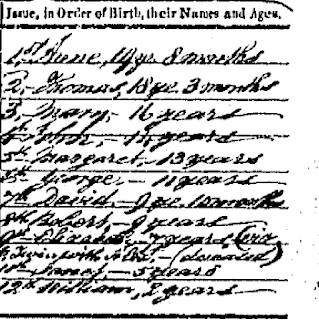 Issue, in Order of Birth, their Names and Ages.
1st Anne, 19 ye. 8 months
2, Thomas, 18 ye. 3 months
3, Mary, - 16 years
4th John, - years
5th Margaret, - 13 years
6th George, - 11 years
7th David, - 9 ye. 10 months
8th Robert, - 9 years
9th Elizabeth, - 7 years
Twin with (deceased)
11th James, - 5 years
12th William, 2 years